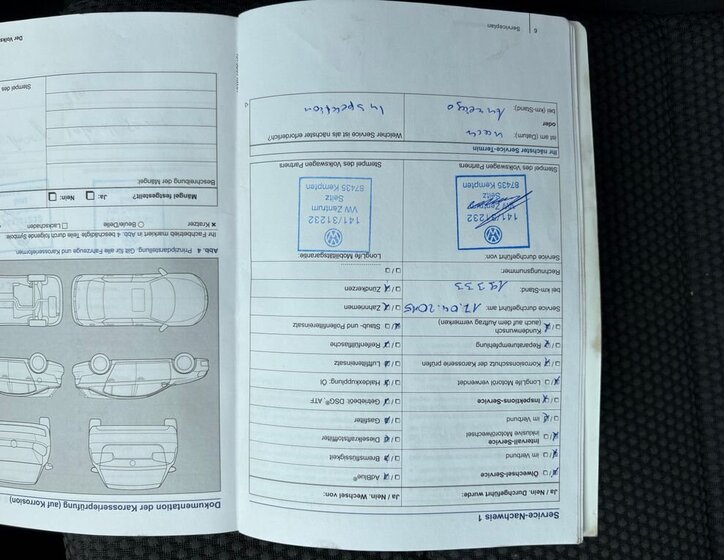 Service-Nachweis 1
Ja / Nein, Durchgeführt wurde:
Ja / Nein, Wechsel von:
Ölwechsel-Service
AdBlue®
Verbund im
Bremsflüssigkeit
Intervall-Service
inklusive Motorölwechsel
Dieselkraftstofffilter
im Verbund
Gasfilter
Inspektions-Service
Getriebeöl: DSG®, ATF
LongLife Motoröl verwendet
Haldexkupplung: Öl
Korrosionsschutz der Karosserie prüfen
Luftfiltereinsatz
Reparaturempfehlung
Reifenfüllflasche
Kundenwunsch
(auch auf dem Auftrag vermerken)
Staub- und Pollenfiltereinsatz
Service durchgeführt am: 17.04.2015
Zahnriemen
bei km-Stand: 19333
Zündkerzen
Rechnungsnummer:
Service durchgeführt von:
LongLife Mobilitätsgarantie:
141/31232
VW Zentrum
Seitz
87435 Kempten
141/31232
VW Zentrum
Seitz
87435 Kempten
Stempel des Volkswagen Partners
Stempel des Volkswagen Partners
Ihr nächster Service-Termin
ist am (Datum): nach
Welcher Service ist als nächster erforderlich?
oder
bei (km-Stand): Anzeige
Inspektion
6 Serviceplan
Dokumentation der Karosserieprüfung (auf Korrosion)
Abb. 4 Prinzipdarstellung. Gilt für alle Fahrzeuge und Karosserieformen.
Ihr Fachbetrieb markiert in Abb. 4 beschädigte Teile durch folgende Symbole:
× Kratzer
○ Beule/Delle
□ Lackschaden
Mängel festgestellt?
Ja:
Nein:
Beschreibung der Mängel:
Stempel des
Der Volks